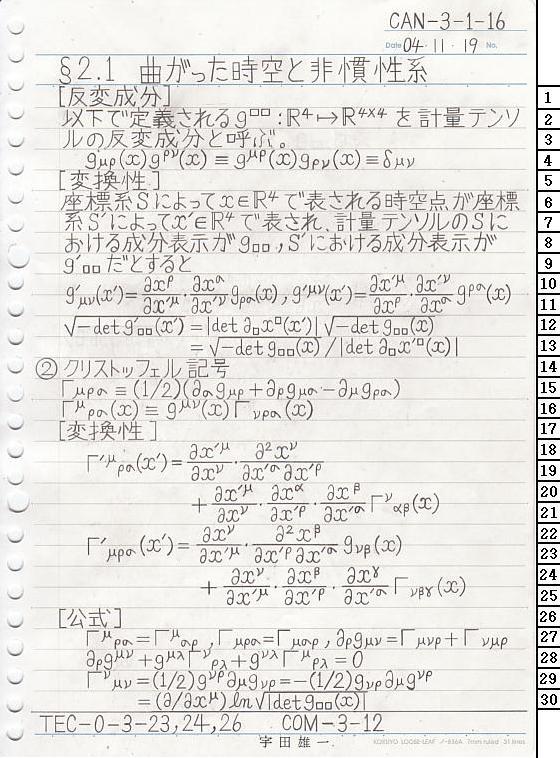 CAN-3-1-16
Date 04・11・19 No.
§2.1 曲がった時空と非慣性系
[反変成分]
以下で定義されるg□□:ℝ⁴↦ℝ⁴ˣ⁴を計量テンソ
ルの反変成分と呼ぶ。
g_{μρ}(x)g^{ρν}(x)≡g^{μρ}(x)g_{ρν}(x)≡δ_{μν}
[変換性]
座標系Sによってx∈ℝ⁴で表される時空点が座標
系S′によってx′∈ℝ⁴で表され、計量テンソルのSに
おける成分表示がg□□,S′における成分表示が
g′□□だとすると
g′_{μν}(x′)=∂x^ρ/∂x′^μ・∂x^σ/∂x′^ν g_{ρσ}(x), g′^{μν}(x′)=∂x′^μ/∂x^ρ・∂x′^ν/∂x^σ g^{ρσ}(x)
√-det g′□□(x′) =|det ∂□x^□(x′)|√-det g□□(x)
=√-det g□□(x) /|det ∂□x′^□(x)|
② クリストッフェル記号
Γ_{μρσ}≡(1/2)(∂_σ g_{μρ}+∂_ρ g_{μσ}-∂_μ g_{ρσ})
Γ^μ_{ρσ}(x)≡g^{μν}(x)Γ_{νρσ}(x)
[変換性]
Γ′^μ_{ρσ}(x′)=∂x′^μ/∂x^ν・∂²x^ν/∂x′^σ∂x′^ρ
+∂x′^μ/∂x^ν・∂x^α/∂x′^ρ・∂x^β/∂x′^σ Γ^ν_{αβ}(x)
Γ′_{μρσ}(x′)=∂x^ν/∂x′^μ・∂²x^β/∂x′^ρ∂x′^σ g_{νβ}(x)
+∂x^ν/∂x′^μ・∂x^β/∂x′^ρ・∂x^γ/∂x′^σ Γ_{νβγ}(x)
[公式]
Γ^μ_{ρσ}=Γ^μ_{σρ}, Γ_{μρσ}=Γ_{μσρ}, ∂_ρ g_{μν}=Γ_{μνρ}+Γ_{νμρ}
∂_ρ g^{μν}+g^{μλ}Γ^ν_{ρλ}+g^{νλ}Γ^μ_{ρλ}=0
Γ^ν_{μν}=(1/2)g^{νρ}∂_μ g_{νρ}=-(1/2)g_{νρ}∂_μ g^{νρ}
=(∂/∂x^μ)ln√|det g□□(x)|
TEC-0-3-23,24,26 COM-3-12
宇田雄一
KOKUYO LOOSE-LEAF ノ-836A 7mm ruled 31 lines
1
2
3
4
5
6
7
8
9
10
11
12
13
14
15
16
17
18
19
20
21
22
23
24
25
26
27
28
29
30